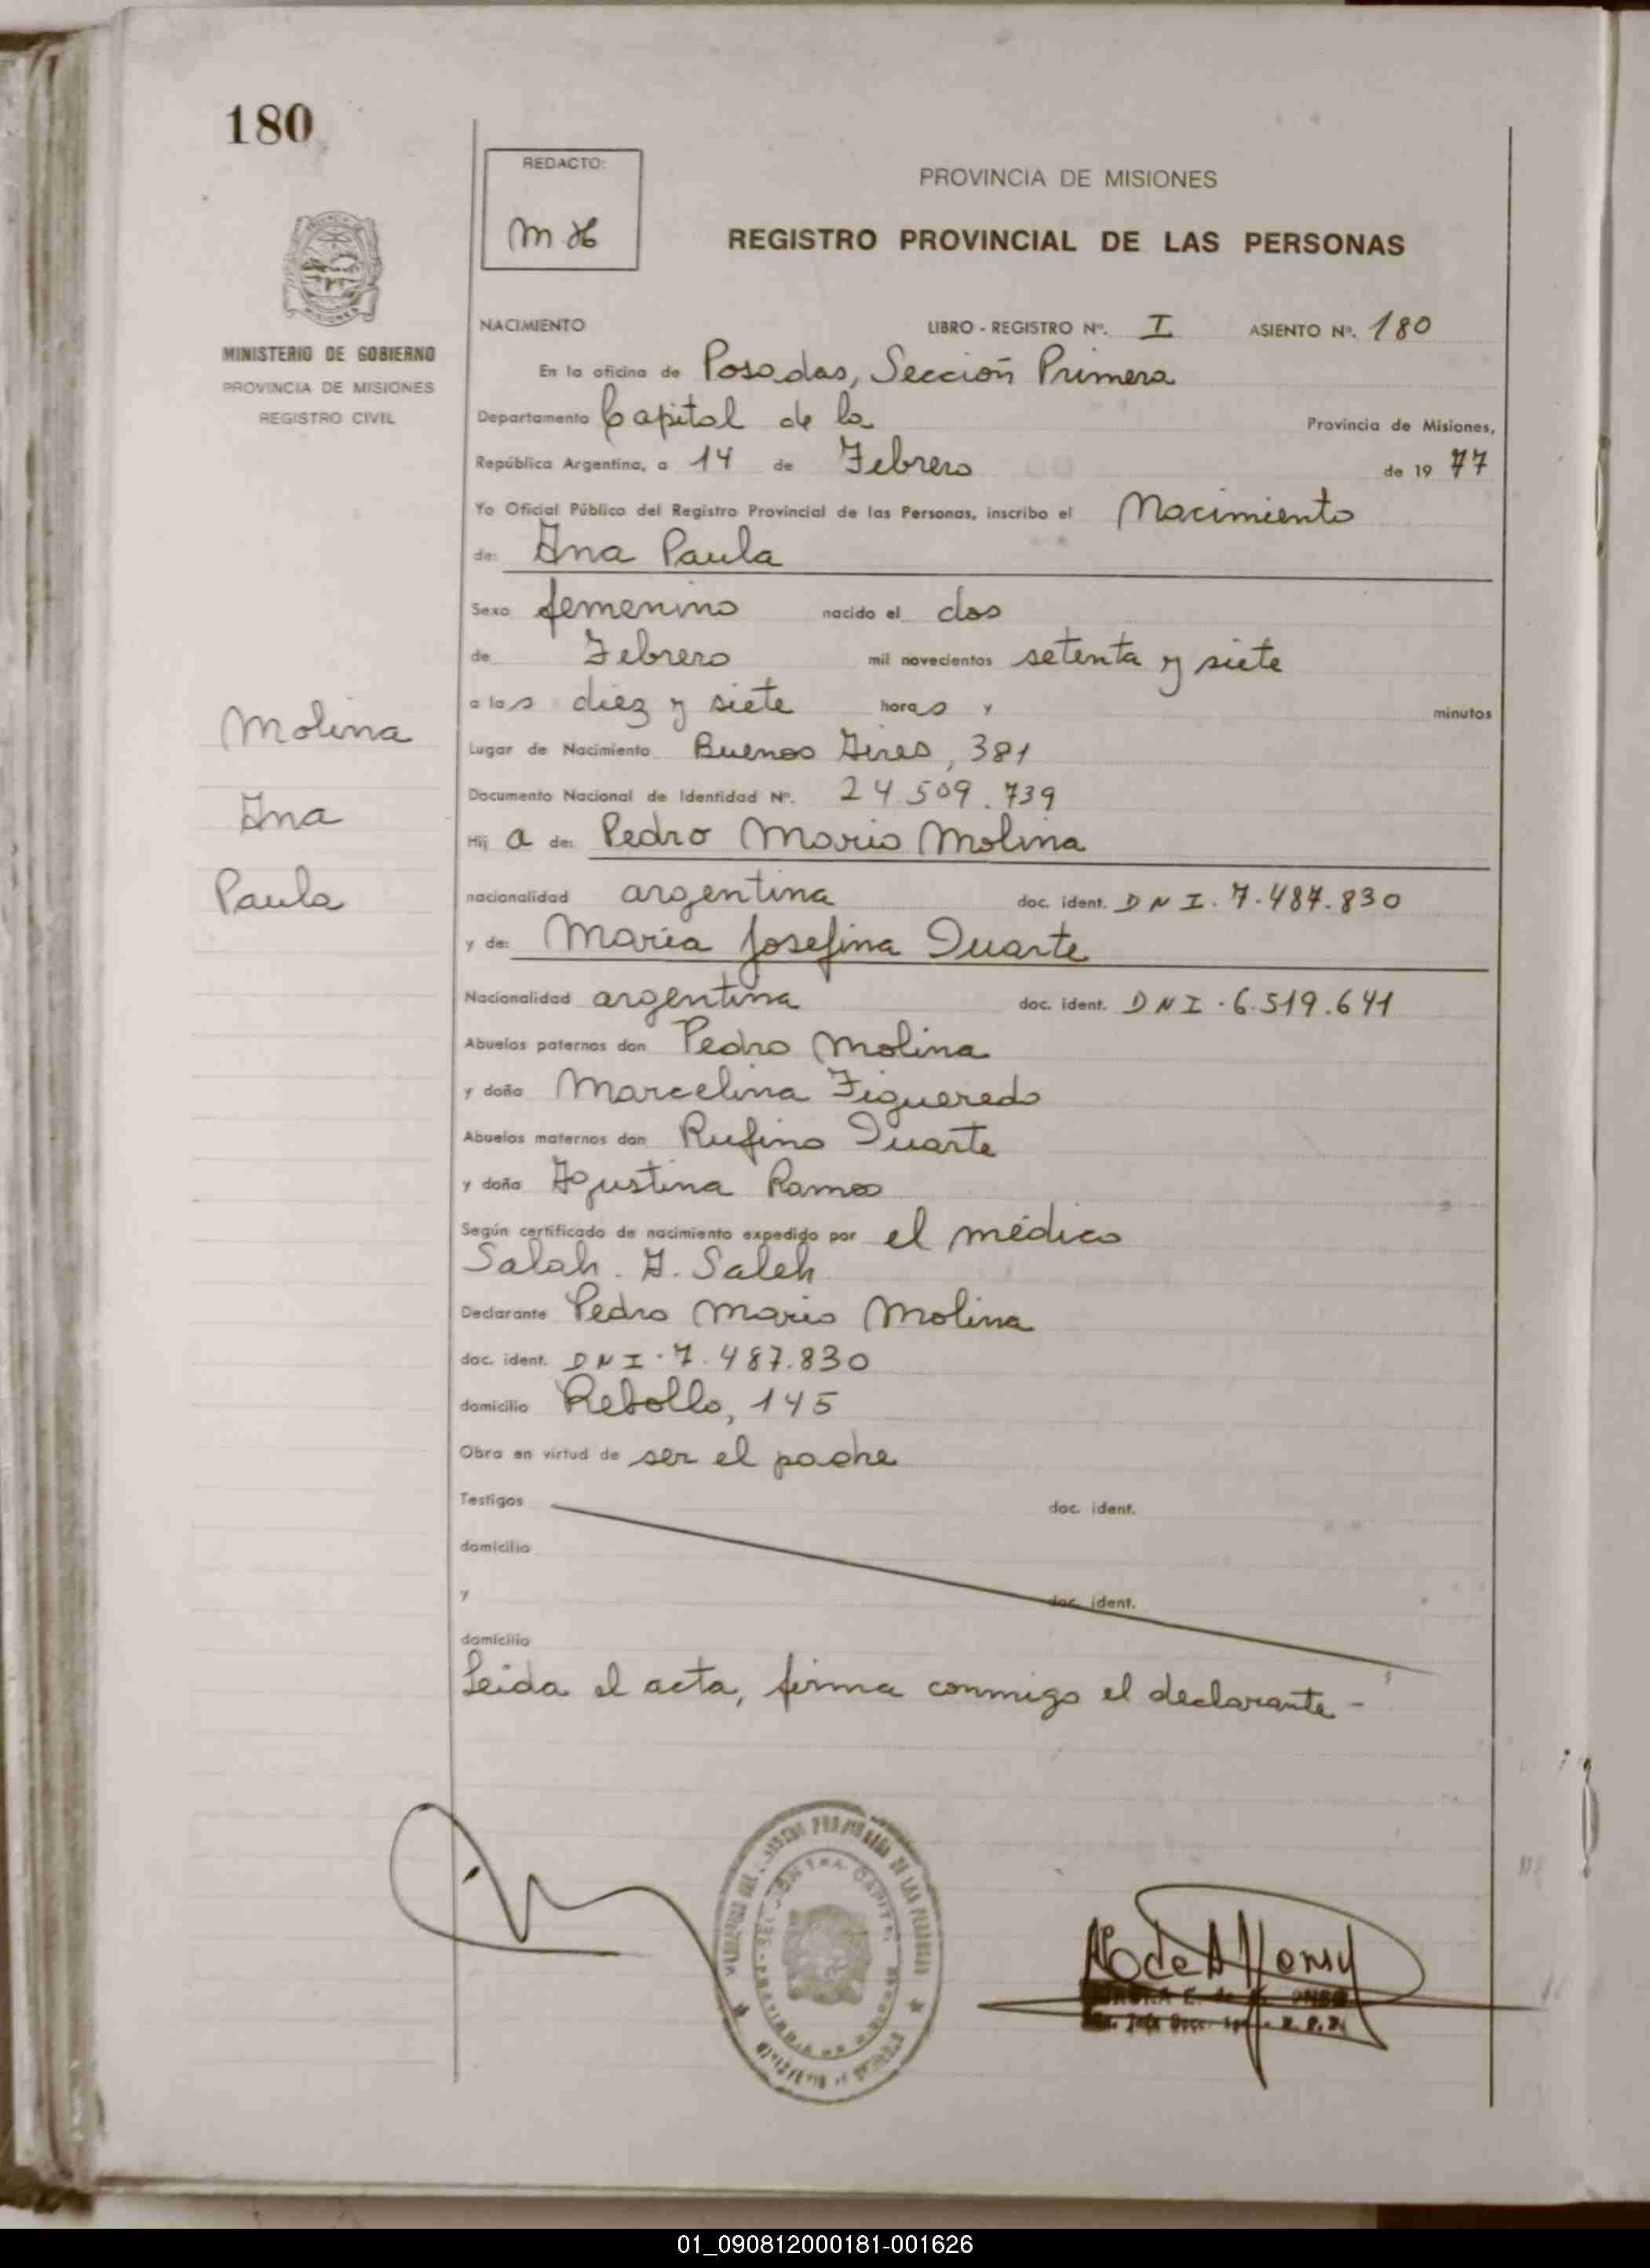 180
REDACTO:
M H
PROVINCIA DE MISIONES
REGISTRO PROVINCIAL DE LAS PERSONAS
MISIONES
MINISTERIO DE GOBIERNO
PROVINCIA DE MISIONES
REGISTRO CIVIL
NACIMIENTO LIBRO - REGISTRO Nº. I ASIENTO Nº. 180
En la oficina de Posadas, Sección Primera
Departamento Capital de la Provincia de Misiones,
República Argentina, a 14 de Febrero de 1977
Yo Oficial Público del Registro Provincial de las Personas, inscribo el Nacimiento
de: Ana Paula
Sexo femenino nacido el dos
de Febrero mil novecientos setenta y siete
a las diez y siete horas y minutos
Lugar de Nacimiento Buenos Aires, 381
Documento Nacional de Identidad Nº. 24.509.739
Hij a de: Pedro Mario Molina
nacionalidad argentina doc. ident. DNI. 7.487.830
y de: María Josefina Duarte
Nacionalidad argentina doc. ident. DNI. 6.519.641
Abuelos paternos don Pedro Molina
y doña Marcelina Figueredo
Abuelos maternos don Rufino Duarte
y doña Agustina Ramos
Según certificado de nacimiento expedido por el médico
Salah. A. Saleh
Declarante Pedro Mario Molina
doc. ident. DNI. 7.487.830
domicilio Rebollo, 145
Obra en virtud de ser el padre
Testigos doc. ident.
domicilio
y doc. ident.
domicilio
Leída el acta, firma conmigo el declarante -
Molina
Ana
Paula
01_090812000181-001626